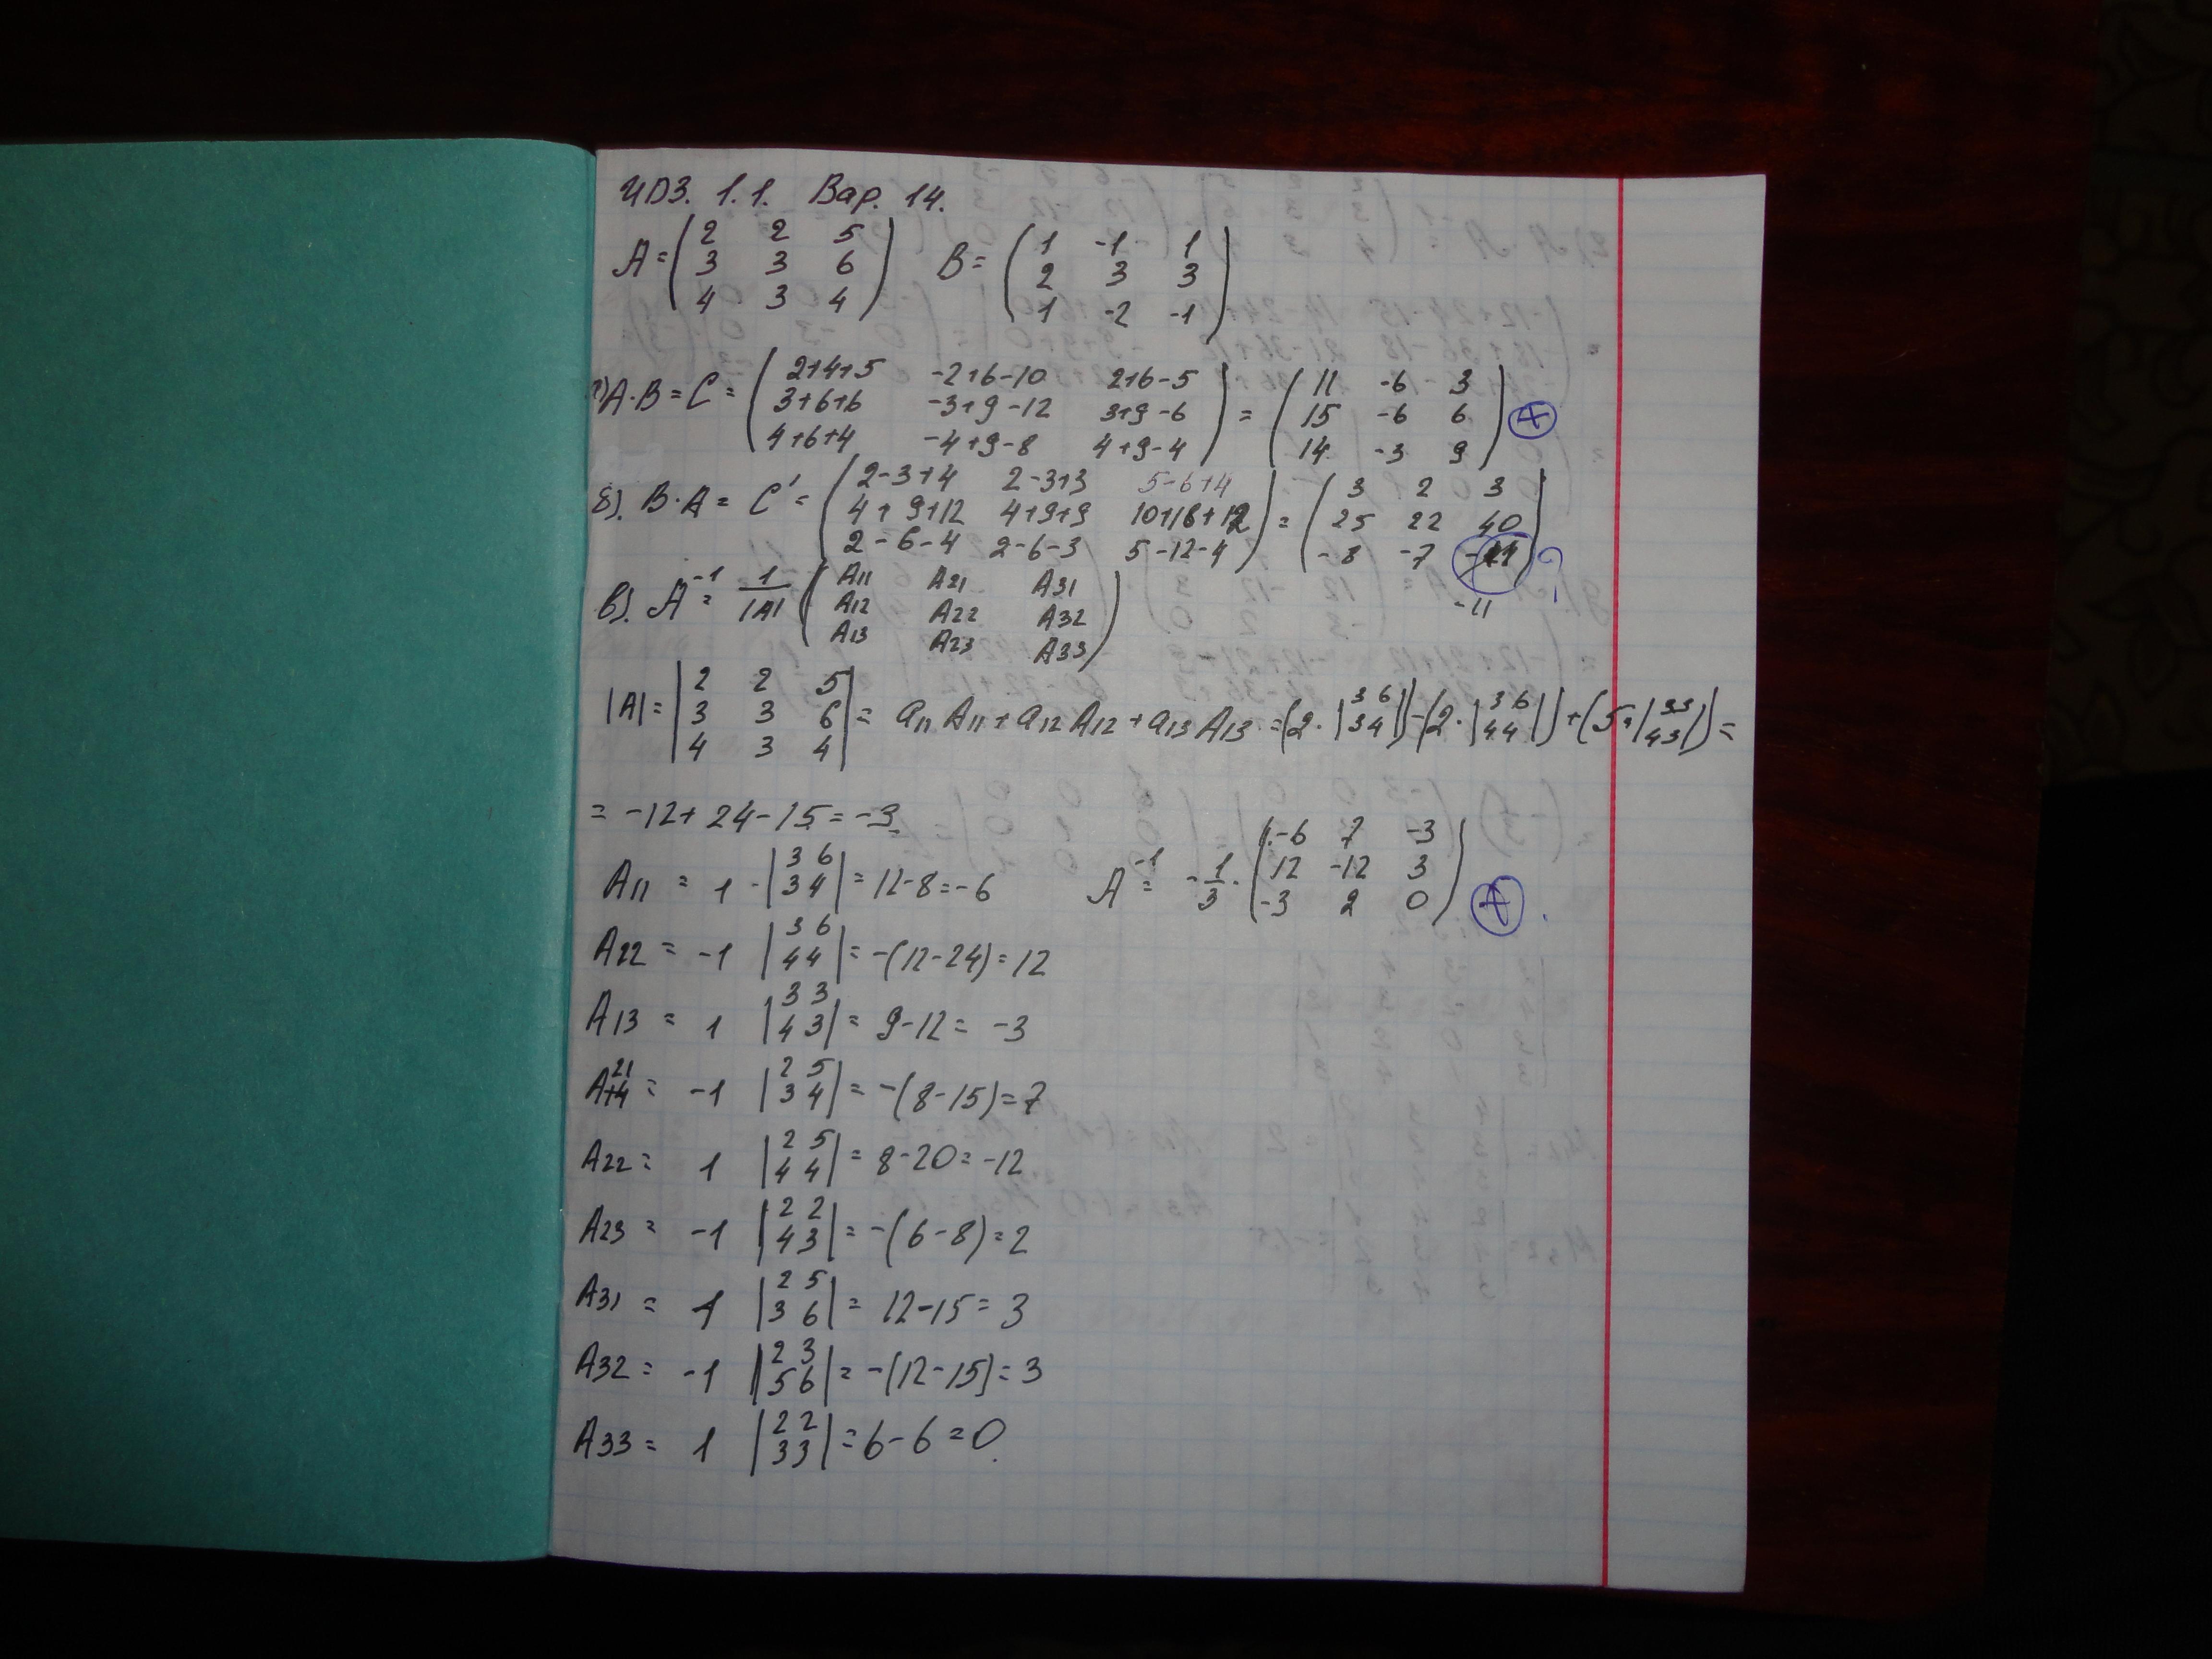 ИДЗ. 1.1. Вар. 14.
A = ( 2 2 5 ; 3 3 6 ; 4 3 4 ) B = ( 1 -1 1 ; 2 3 3 ; 1 -2 -1 )
а) A·B = C = ( 2+4+5 -2+6-10 2+6-5 ; 3+6+6 -3+9-12 3+9-6 ; 4+6+4 -4+9-8 4+9-4 ) = ( 11 -6 3 ; 15 -6 6 ; 14 -3 9 ) +
б). B·A = C' = ( 2-3+4 2-3+3 5-6+4 ; 4+9+12 4+9+9 10+18+12 ; 2-6-4 2-6-3 5-12-4 ) = ( 3 2 3 ; 25 22 40 ; -8 -7 -11 ) ?
-11
в). A⁻¹ = 1/|A| ( A11 A21 A31 ; A12 A22 A32 ; A13 A23 A33 )
|A| = | 2 2 5 ; 3 3 6 ; 4 3 4 | = a11 A11 + a12 A12 + a13 A13 = (2·|3 6 ; 3 4|) - (2·|3 6 ; 4 4|) + (5·|3 3 ; 4 3|) =
= -12 + 24 - 15 = -3
A11 = 1 · |3 6 ; 3 4| = 12-8 = -6 A⁻¹ = -1/3 · ( -6 7 -3 ; 12 -12 3 ; -3 2 0 ) +
A22 = -1 |3 6 ; 4 4| = -(12-24) = 12
A13 = 1 |3 3 ; 4 3| = 9-12 = -3
A21 = -1 |2 5 ; 3 4| = -(8-15) = 7
A22 = 1 |2 5 ; 4 4| = 8-20 = -12
A23 = -1 |2 2 ; 4 3| = -(6-8) = 2
A31 = 1 |2 5 ; 3 6| = 12-15 = 3
A32 = -1 |2 3 ; 5 6| = -(12-15) = 3
A33 = 1 |2 2 ; 3 3| = 6-6 = 0.